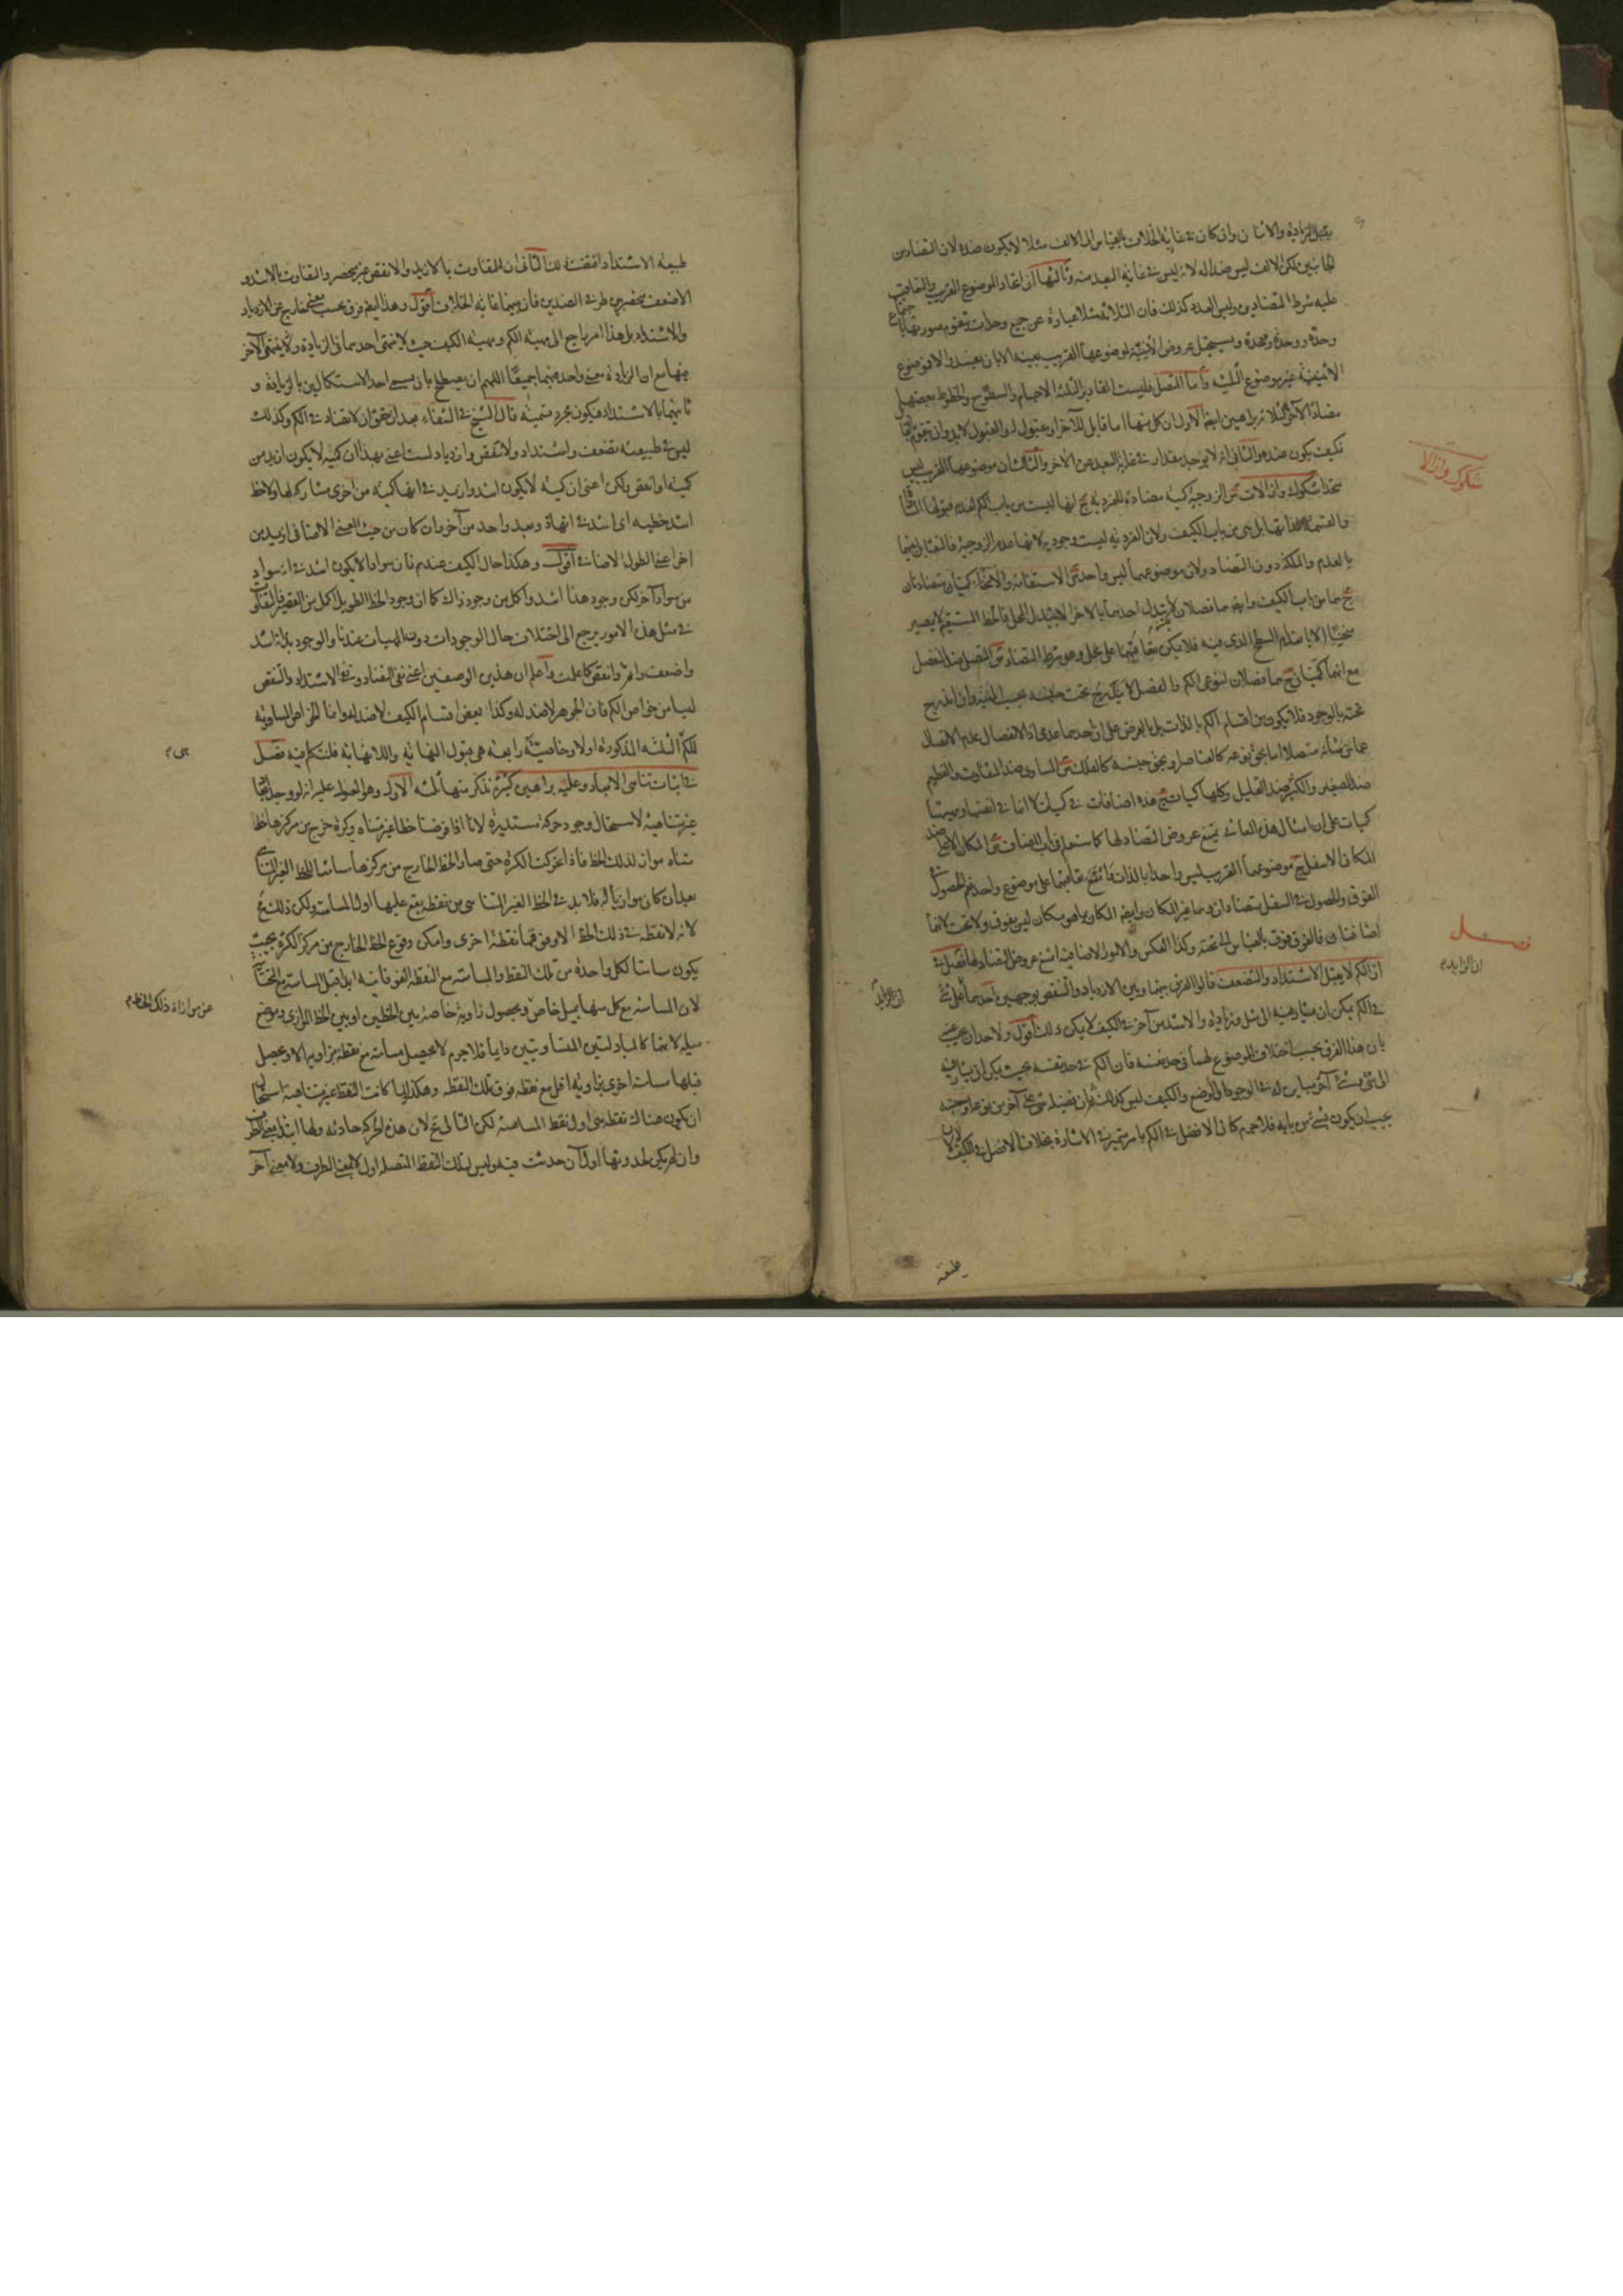 يقبل الزيادة والاثنان وان كان في غاية الخلاف بالقياس الى الالف مثلا لا يكون ضده لان التضاد من
الجانبين لكن الالف ليس ضدا له لانه ليس في غاية البعد منه وثالثها ان اتحاد الموضوع القريب والتعاقب
عليه شرط المتضادين وليس العدد كذلك فان الثلاثة مثلا عبارة عن جميع وحدات يتقوم صورتها باجتماع
وحدة ووحدة ووحدة ويستحيل عروض الاثنينية لموضوعها القريب بعينه الا بان يفسد والا فموضوع
الاثنينية غير موضوع الثلثة واما المتصل فليست المقادير الثلثة الاجسام والسطوح والخطوط بعضها
مضادا لآخر لثلاثة براهين ايضا الاول ان كل منها اما قابل للآخر او مقبول له والمقبول لا بد وان يتقوم بالقابل
فكيف يكون ضده والثاني انه لا يوجد مقدار في غاية البعد عن الآخر والثالث ان موضوعها القريب ليس
متحدا شكوك وازالات الزوجية كمية مضادة للفردية انها ليست من باب الكم لعدم قبولها المساواة
والقسمة لذاتها بل هي من باب الكيف ولان الفردية ليست وجودية لانها عدم الزوجية فالتقابل بينهما
بالعدم والملكة دون التضاد ولان موضوعهما ليس واحدا الاستقامة والانحناء كميتان متضادتان
هما من باب الكيف وايضا هما فصلان لا يتبدل احدهما بالآخر الا بتبدل المحل فالخط المستقيم لا يصير
منحنيا الا بانعدام السطح الذي فيه فلا يمكن تعاقبهما على محل وهو شرط التضاد المتصل ضد المنفصل
مع انهما كميتان هما فصلان لنوعي الكم والفصل لا يندرج تحت جنسه بحسب المهية وان اندرج
تحته بالوجود فلا يكون من اقسام الكم بالذات بل بالعرض على ان احدهما عدمي اذ الانفصال عدم الاتصال
عما من شأنه متصلا اما بحق نوعه كالعناصر او بحق جنسه كالفلك المساوي ضد المتفاوت والعظيم
ضد الصغير والكثير ضد القليل وكلها كميات هذه اضافات في كميات لا انها في انفسها
كميات على ان امثال هذه المعاني يمتنع عروض التضاد لها كما ستعلم في باب المضاف المكان الاعلى ضد
المكان الاسفل موضوعهما القريب ليس واحدا بالذات فامتنع تعاقبهما على موضوع واحد نعم الحصول في
الفوق والحصول في السفل متضادان وهما غير المكان وايضا المكان بما هو مكان ليس بفوق ولا تحت لانهما
اضافتان فالفوق فوق بالقياس الى تحته وكذا العكس والامور الاضافية امتنع عروض التضاد لها فصل في
ان الكم لا يقبل الاشتداد والتضعف قالوا الفرق بينهما وبين الازدياد والتنقص بوجهين احدهما
في الكم يمكن ان يشار فيه الى مثل وزيادة والاشد من آخر في الكيف لا يمكن ذلك اقول ولاحد ان يجيب
بان هذا الفرق بحسب اختلاف الموضوع لهما في حد نفسه فان الكم في حد نفسه بحيث يمكن ان يشار فيه
الى شيء وشيء آخر مباين له في الوجود او الوضع والكيف ليس كذلك
يجب ان يكون شيئ من بابه فلا جرم كان الافضل في الكم بامر متميز في الاشارة بخلاف الافضل في الكيف لان
طبيعة
شكوك وازالات
فصل
ان الزايد م
طبيعة الاشتداد اقتضت ذلك الثاني ان التفاوت بالازيد والانقص غير منحصر والتفاوت بالاشد و
الاضعف ينحصر بين طرفي الضدين فان بينهما غاية الخلاف اقول وهذا ايضا فرق بحسب معنى خارج عن الازدياد
والاشتداد بل هذا امر راجع الى مهية الكم ومهية الكيف حيث لا ينتهي احدهما في الزيادة وينتهي الآخر
فيها مع ان الزيادة معنى واحد فيهما جميعا اللهم ان يصطلح بان يسمى احد الاستكمالين بالزيادة و
ثانيهما بالاشتداد فيكون مجرد تسمية قال الشيخ في الشفاء بعد ان حقق ان لا تضاد في الكم وكذلك
ليس في طبيعته تضعف واشتداد ولا تنقص وازدياد لست اعني بهذا ان كمية لا يكون ازيد من
كمية او انقص ولكن اعني ان كمية لا يكون اشد وازيد في انها كمية من اخرى مشاركة لها ولا خط
اشد خطية اي اشد في انه ذو بعد واحد من آخر وان كان من حيث المعنى الاضافي ازيد من
آخر اعني الطول الاضافي اقول وهكذا حال الكيف عندهم فان سوادا لا يكون اشد في انه سواد
من سواد آخر لكن وجود هذا اشد واكمل من وجود ذاك كما ان وجود الخط الطويل اكمل من القصير فالتفاوت
في مثل هذه الامور يرجع الى اختلاف حال الوجودات دون المهيات عندنا والوجود بذاته اشد
واضعف واتم وانقص كما علمت واعلم ان هذين الوصفين اعني نفي التضاد ونفي الاشتداد والتنقص
ليسا من خواص الكم فان الجوهر لا ضد له وكذا بعض اقسام الكيف لا ضد له وانما الخواص المساوية
للكم الثلثة المذكورة اولا وخاصية رابعة هي قبول النهاية واللانهاية فلنتكلم فيه فصل
في اثبات تناهي الابعاد وعليه براهين كثيرة نذكر منها ثلثة الاول وهو المعول عليه انه لو وجد ابعاد
غير متناهية لاستحال وجود حركة مستديرة لانا اذا فرضنا خطا غير متناه وكرة خرج من مركزها خط
متناه مواز لذلك الخط فاذا تحركت الكرة حتى صار الخط الخارج من مركزها مسامتا للخط الغير المتناهي
بعد ان كان موازيا له فلا بد في الخط الغير المتناهي من نقطة يقع عليها اول المسامتة ولكن ذلك مح
لانه لا نقطة في ذلك الخط الا وفوقها نقطة اخرى وامكن وقوع الخط الخارج من مركز الكرة بحيث
يكون مسامتا لكل واحدة من تلك النقط والمسامتة مع النقطة الفوقانية ابدا قبل المسامتة مع التحتانية
لان المسامتة مع كل منها بميل خاص وبحصول زاوية خاصة بين الخطين او بين الخط الموازي وموضع
ميله لانهما كالمتبادلتين المتساويتين دايما فلا جرم لا يحصل مسامتة مع نقطة بزاوية الا ويحصل
قبلها مسامتة اخرى بزاوية اقل مع نقطة فوق تلك النقطة وهكذا لما كانت النقط غير متناهية استحال
ان يكون هناك نقطة هي اول نقط المسامتة لكن التالي مح لان هذه الحركة حادثة ولها ابتداء بمعنى الطرف
وان لم يكن لحدوثها اول آن حدثت فيه وليس لتلك النقط المتصلة اول لا بمعنى الطرف ولا بمعنى آخر
هي م
عن موازاة ذلك الخط م